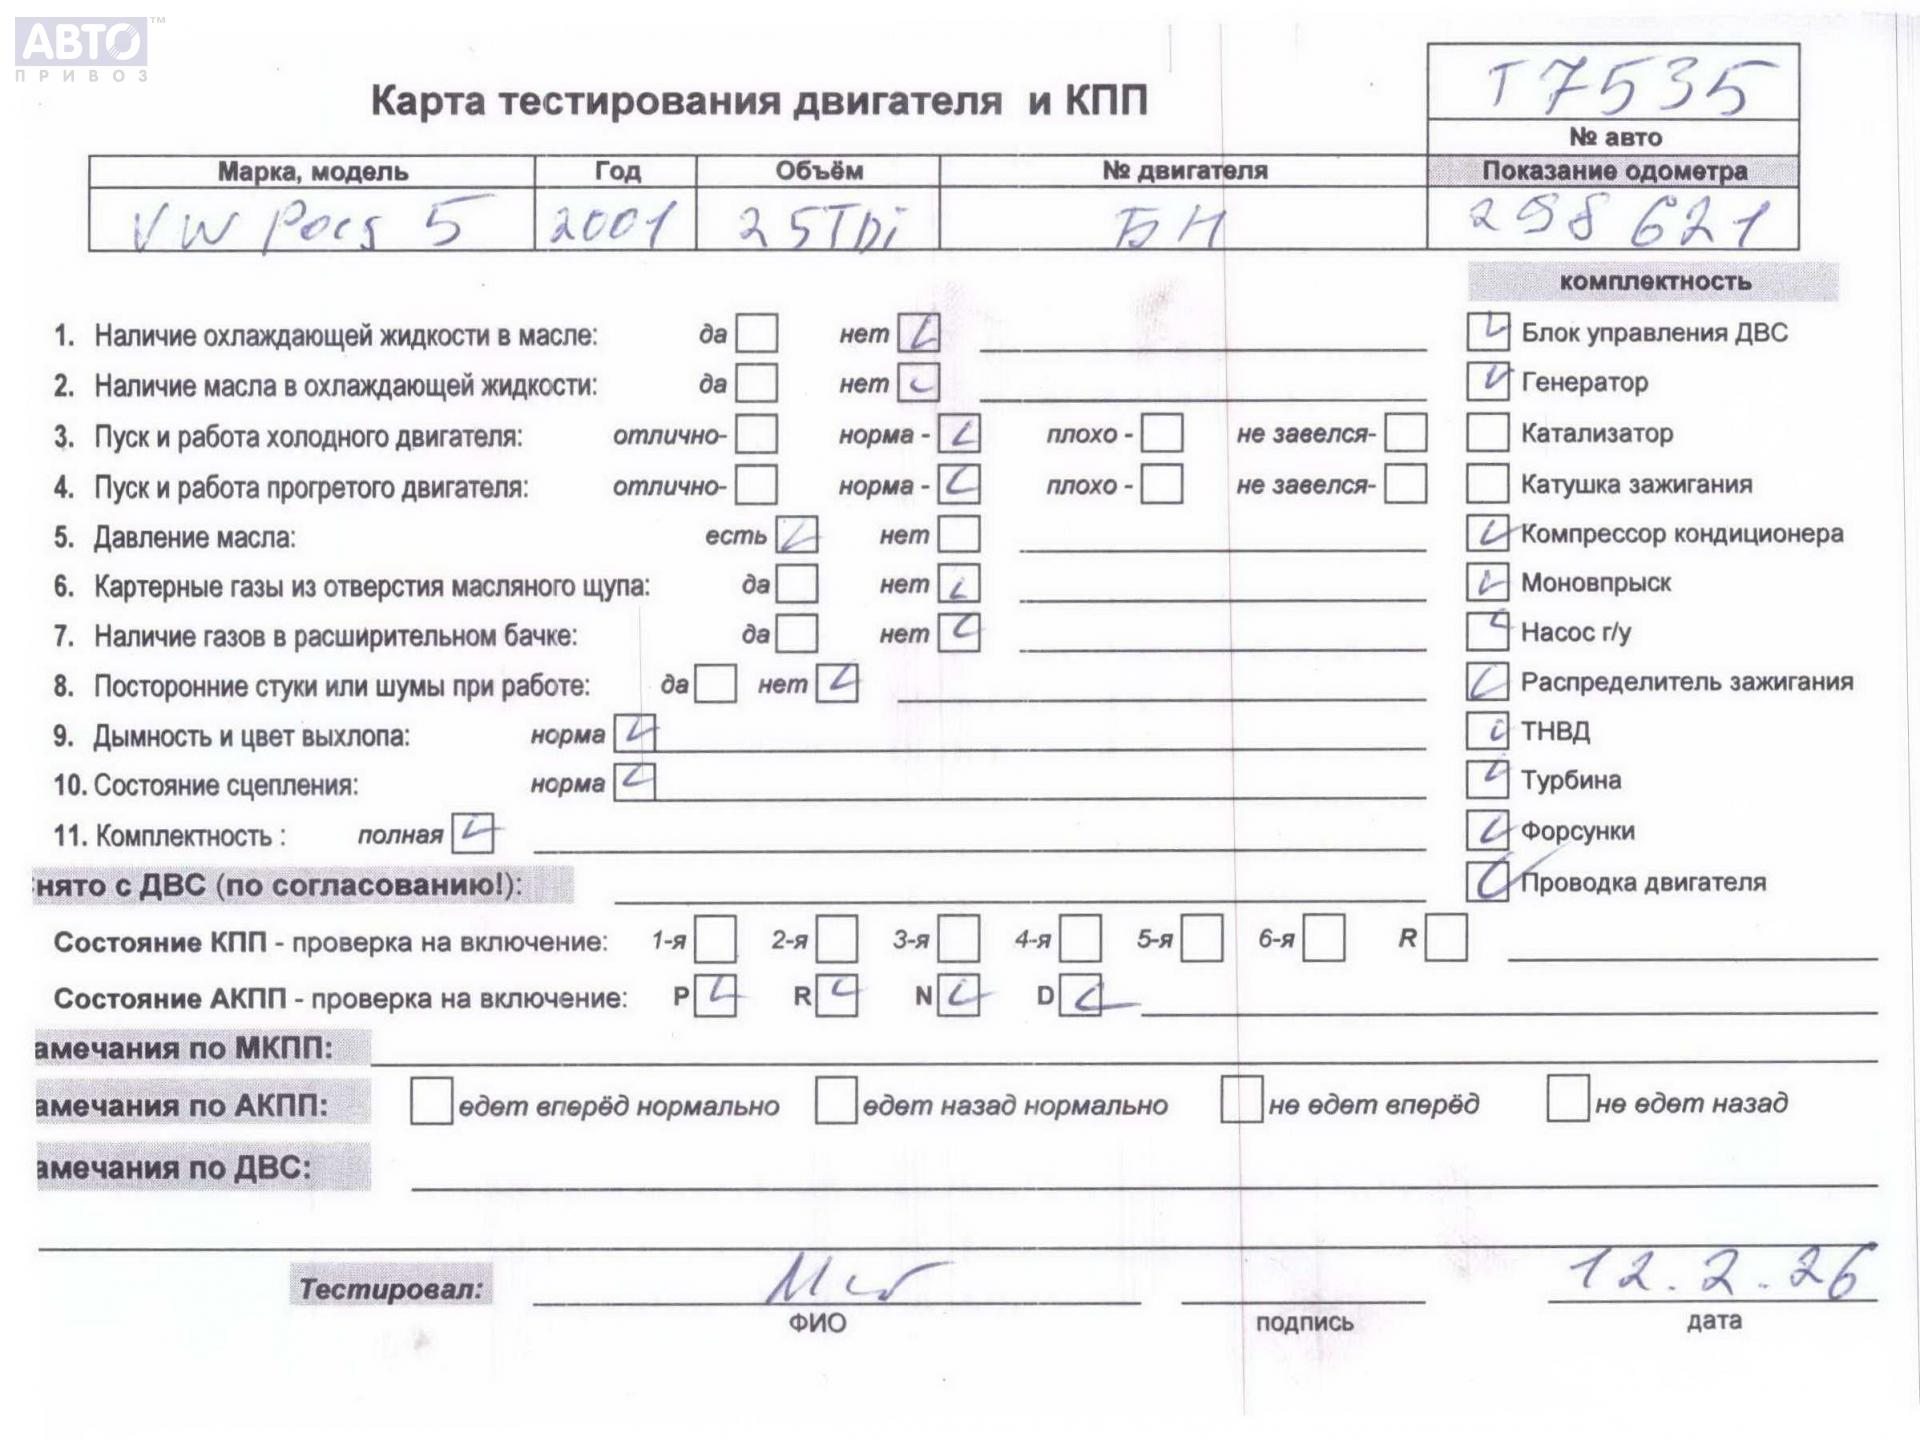 АВТО™
ПРИВОЗ
Т7535
Карта тестирования двигателя и КПП
№ авто
Марка, модель Год Объём № двигателя Показание одометра
VW 5 2001 25TDi БН 298621
комплектность
1. Наличие охлаждающей жидкости в масле: да нет Блок управления ДВС
2. Наличие масла в охлаждающей жидкости: да нет Генератор
3. Пуск и работа холодного двигателя: отлично- норма - плохо - не завелся- Катализатор
4. Пуск и работа прогретого двигателя: отлично- норма - плохо - не завелся- Катушка зажигания
5. Давление масла: есть нет Компрессор кондиционера
6. Картерные газы из отверстия масляного щупа: да нет Моновпрыск
7. Наличие газов в расширительном бачке: да нет Насос г/у
8. Посторонние стуки или шумы при работе: да нет Распределитель зажигания
9. Дымность и цвет выхлопа: норма ТНВД
10. Состояние сцепления: норма Турбина
11. Комплектность : полная Форсунки
нято с ДВС (по согласованию!): Проводка двигателя
Состояние КПП - проверка на включение: 1-я 2-я 3-я 4-я 5-я 6-я R
Состояние АКПП - проверка на включение: P R N D
амечания по МКПП:
амечания по АКПП: едет вперёд нормально едет назад нормально не едет вперёд не едет назад
амечания по ДВС:
Тестировал: 12.2.26
ФИО подпись дата